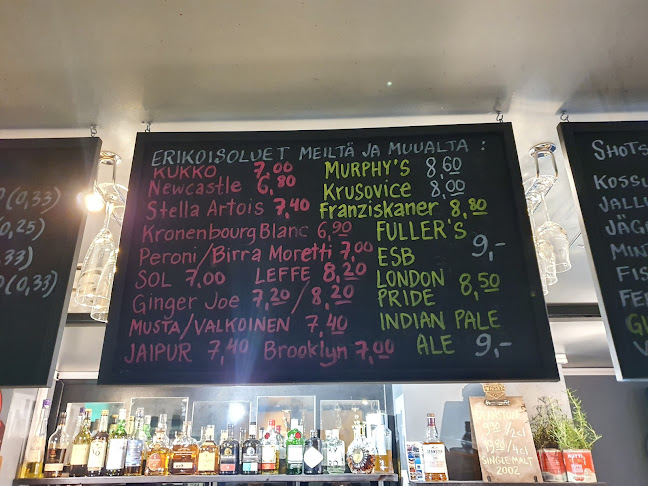 ERIKOISOLUET MEILTÄ JA MUUALTA :
KUKKO 7,00
Newcastle 6,80
Stella Artois 7,40
Kronenbourg Blanc 6,90
Peroni/Birra Moretti 7,00
SOL 7.00 LEFFE 8,20
Ginger Joe 7,20 / 8,20
MUSTA/VALKOINEN 7,40
JAIPUR 7,40 Brooklyn 7,00
MURPHY'S 8,60
Krusovice 8,00
Franziskaner 8,80
FULLER'S
ESB 9,-
LONDON
PRIDE 8,50
INDIAN PALE
ALE 9,-
(0,33)
(0,25)
(0,33)
SHOTS
KOSSU
JALLU
JÄG
MIN
FIS
FE
SINGLE MALT
2002